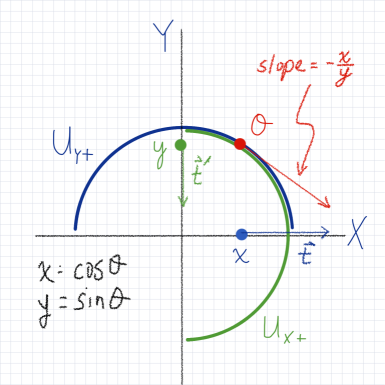 Y
slope = -x/y
θ
U_{y+}
y
t⃗'
X
x
t⃗
x = cosθ
y = sinθ
U_{x+}